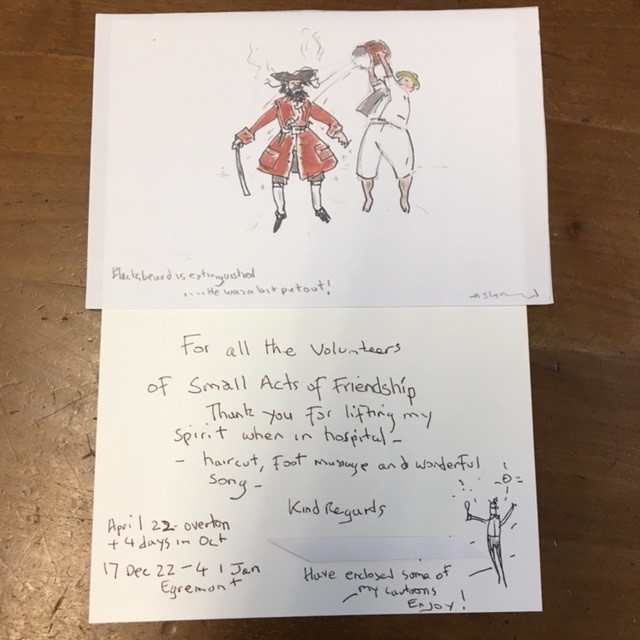 Blackbeard is extinguished
.... He was a bit put out!
For all the Volunteers
of Small Acts of Friendship
Thank you for lifting my
spirit when in hospital -
- haircut, foot massage and wonderful
song -
Kind Regards
April 22 overton
+ 4 days in Oct
17 Dec 22 - 4 1 Jan
Egremont
Have enclosed some of
my cartoons
Enjoy!